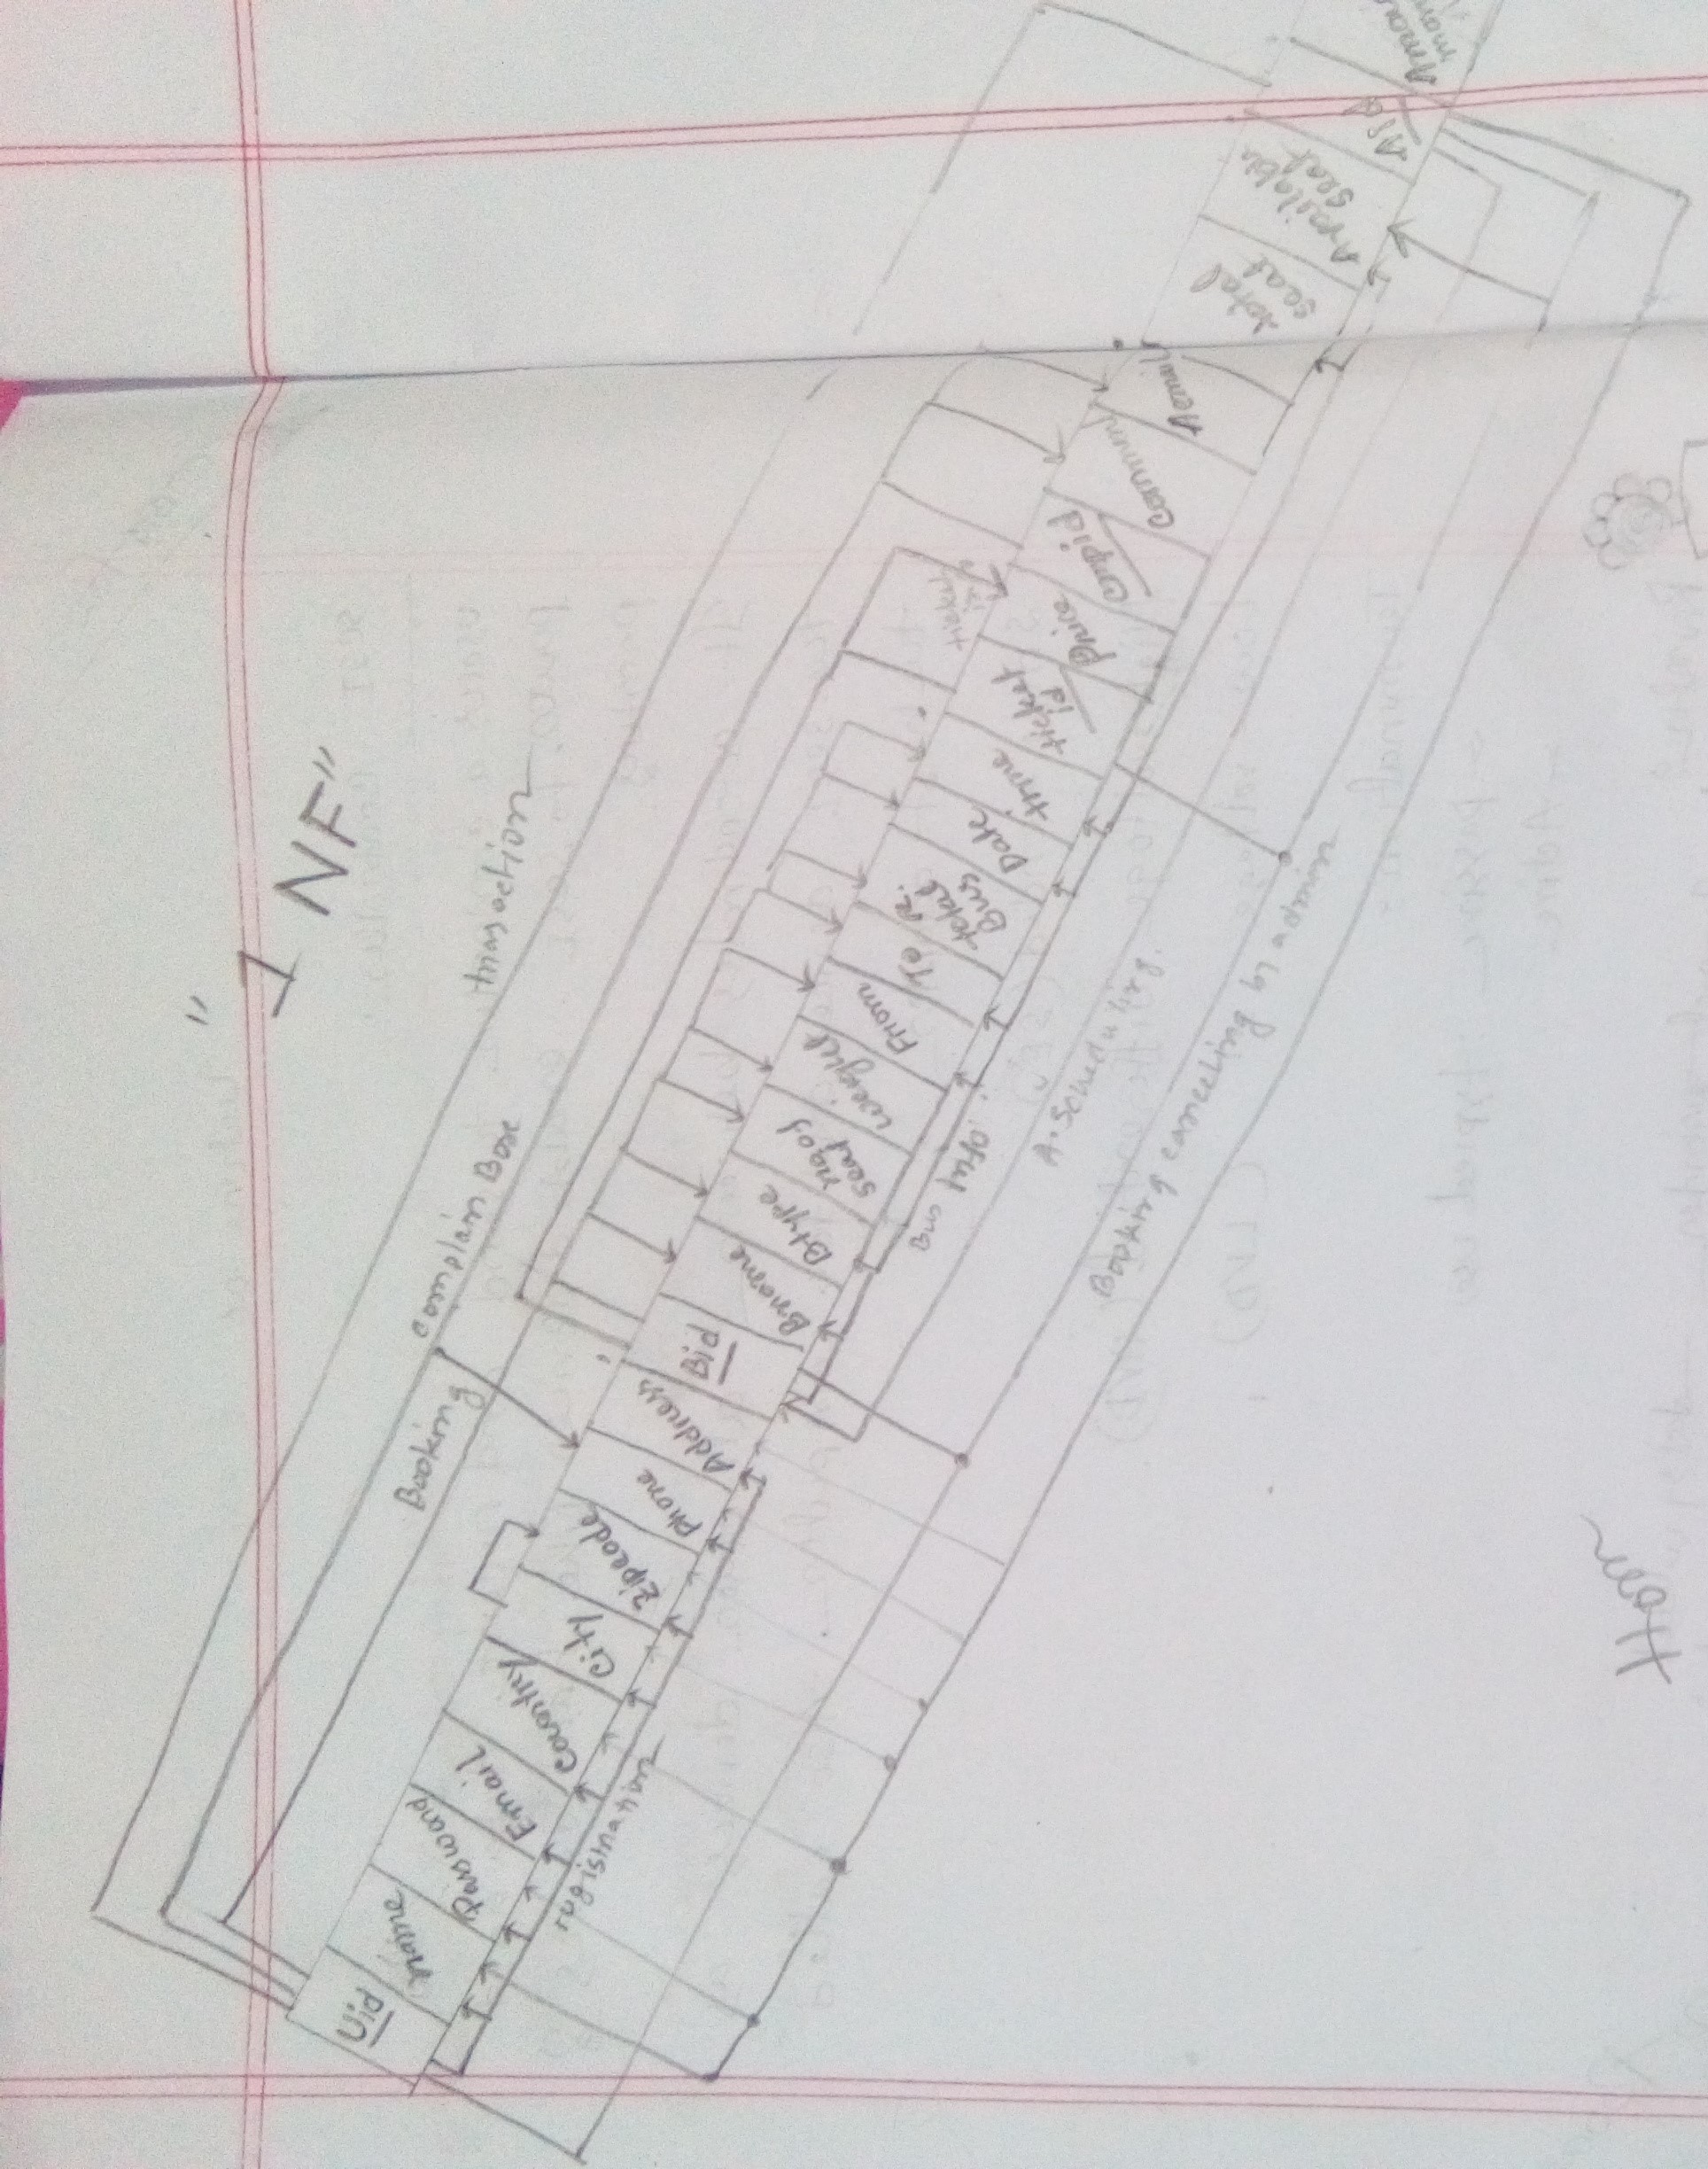 " 1 NF"
transaction
complain Box
Booking
Uid
name
Password
Email
country
city
zipcode
phone
Address
Bid
Bname
Btype
no of
seat
weight
From
To
total
Bus
Date
time
ticket
id
Price
compid
comment
Aemail
total
seat
Available
seat
ticket
registration
Bus Info.
A. Scheduling.
Booking cancelling by admin